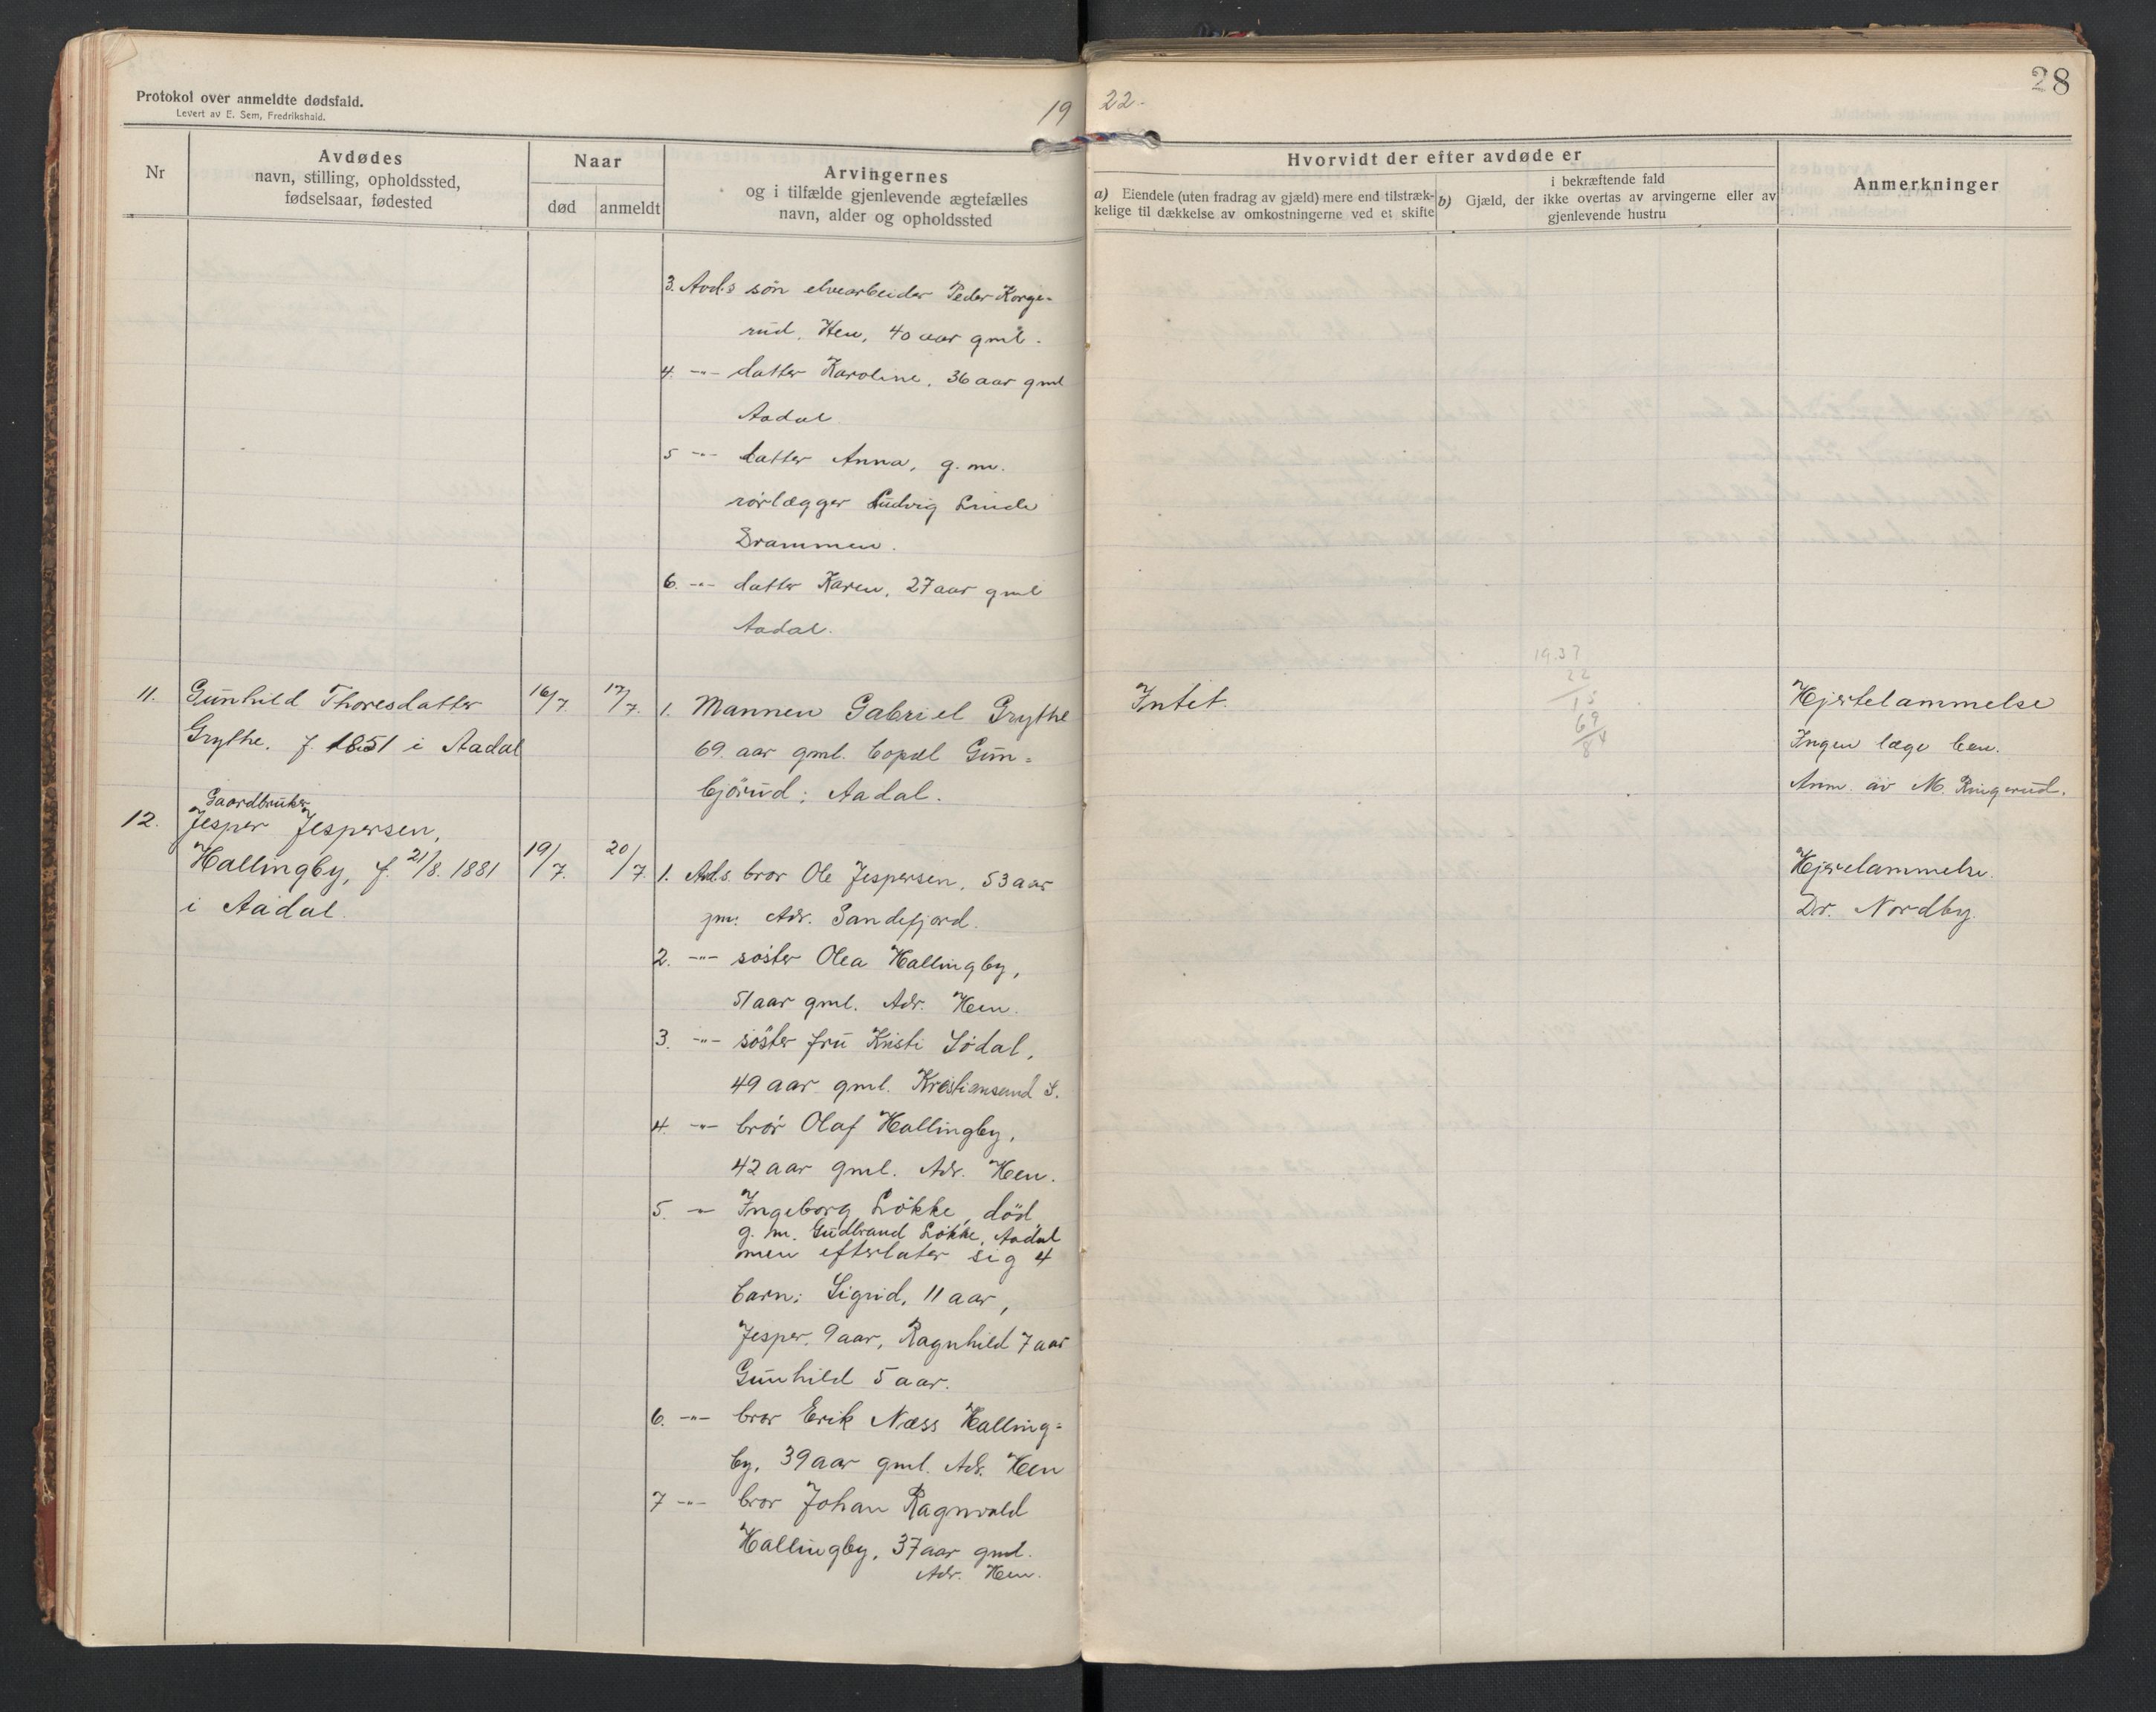 Protokol over anmeldte dødsfald.
Levert av E. Sem, Fredrikshald.
19 22.
28
Nr
Avdødes
navn, stilling, opholdssted,
fødselsaar, fødested
Naar
død
anmeldt
Arvingernes
og i tilfælde gjenlevende ægtefælles
navn, alder og opholdssted
Hvorvidt der efter avdøde er
a) Eiendele (uten fradrag av gjæld) mere end tilstræk-
kelige til dækkelse av omkostningerne ved et skifte
i bekræftende fald
b) Gjæld, der ikke overtas av arvingerne eller av
gjenlevende hustru
Anmerkninger
3. Avd.s søn elvearbeider Peder Korge-
rud, Hen, 40 aar gml.
4. -"- datter Karoline, 36 aar gml
Aadal.
5 -"- datter Anna, g. m.
rørlægger Ludvig Linde
Drammen.
6. -"- datter Karen, 27 aar gml
Aadal.
11. Gunhild Thoresdatter
Grythe. f. 1851 i Aadal
16/7. 17/7.
1. Mannen Gabriel Grythe
69. aar gml. bopæl Gun-
björud; Aadal.
Intet.
19.37
22
15
69
84
Hjertelammelse
Ingen læge ben.
Anm. av M. Ringerud.
12. Gaardbruker
Jesper Jespersen,
Hallingby, f. 21/8. 1881
i Aadal.
19/7. 20/7.
1. Avd.s. bror Ole Jespersen, 53 aar
gm. Adr. Sandefjord.
2. -"- søster Olea Hallingby,
51 aar gml. Adr. Hen.
3. -"- søster fru Kristi Sødal,
49 aar gml. Kristiansand S.
4. -"- bror Olaf Hallingby,
42 aar gml. Adr. Hen.
5. -"- Ingeborg Løkke, død
g. m. Gudbrand Løkke, Aadal
men efterlater sig 4
barn: Sigrid, 11 aar,
Jesper, 9 aar, Ragnhild 7 aar
Gunhild 5 aar.
6. -"- bror Erik Næss Halling-
by, 39 aar gml. Adr. Hen
7 -"- bror Johan Ragnvald
Hallingby, 37 aar gml.
Adr. Hen.
Hjertelammelse.
Dr. Nordby.